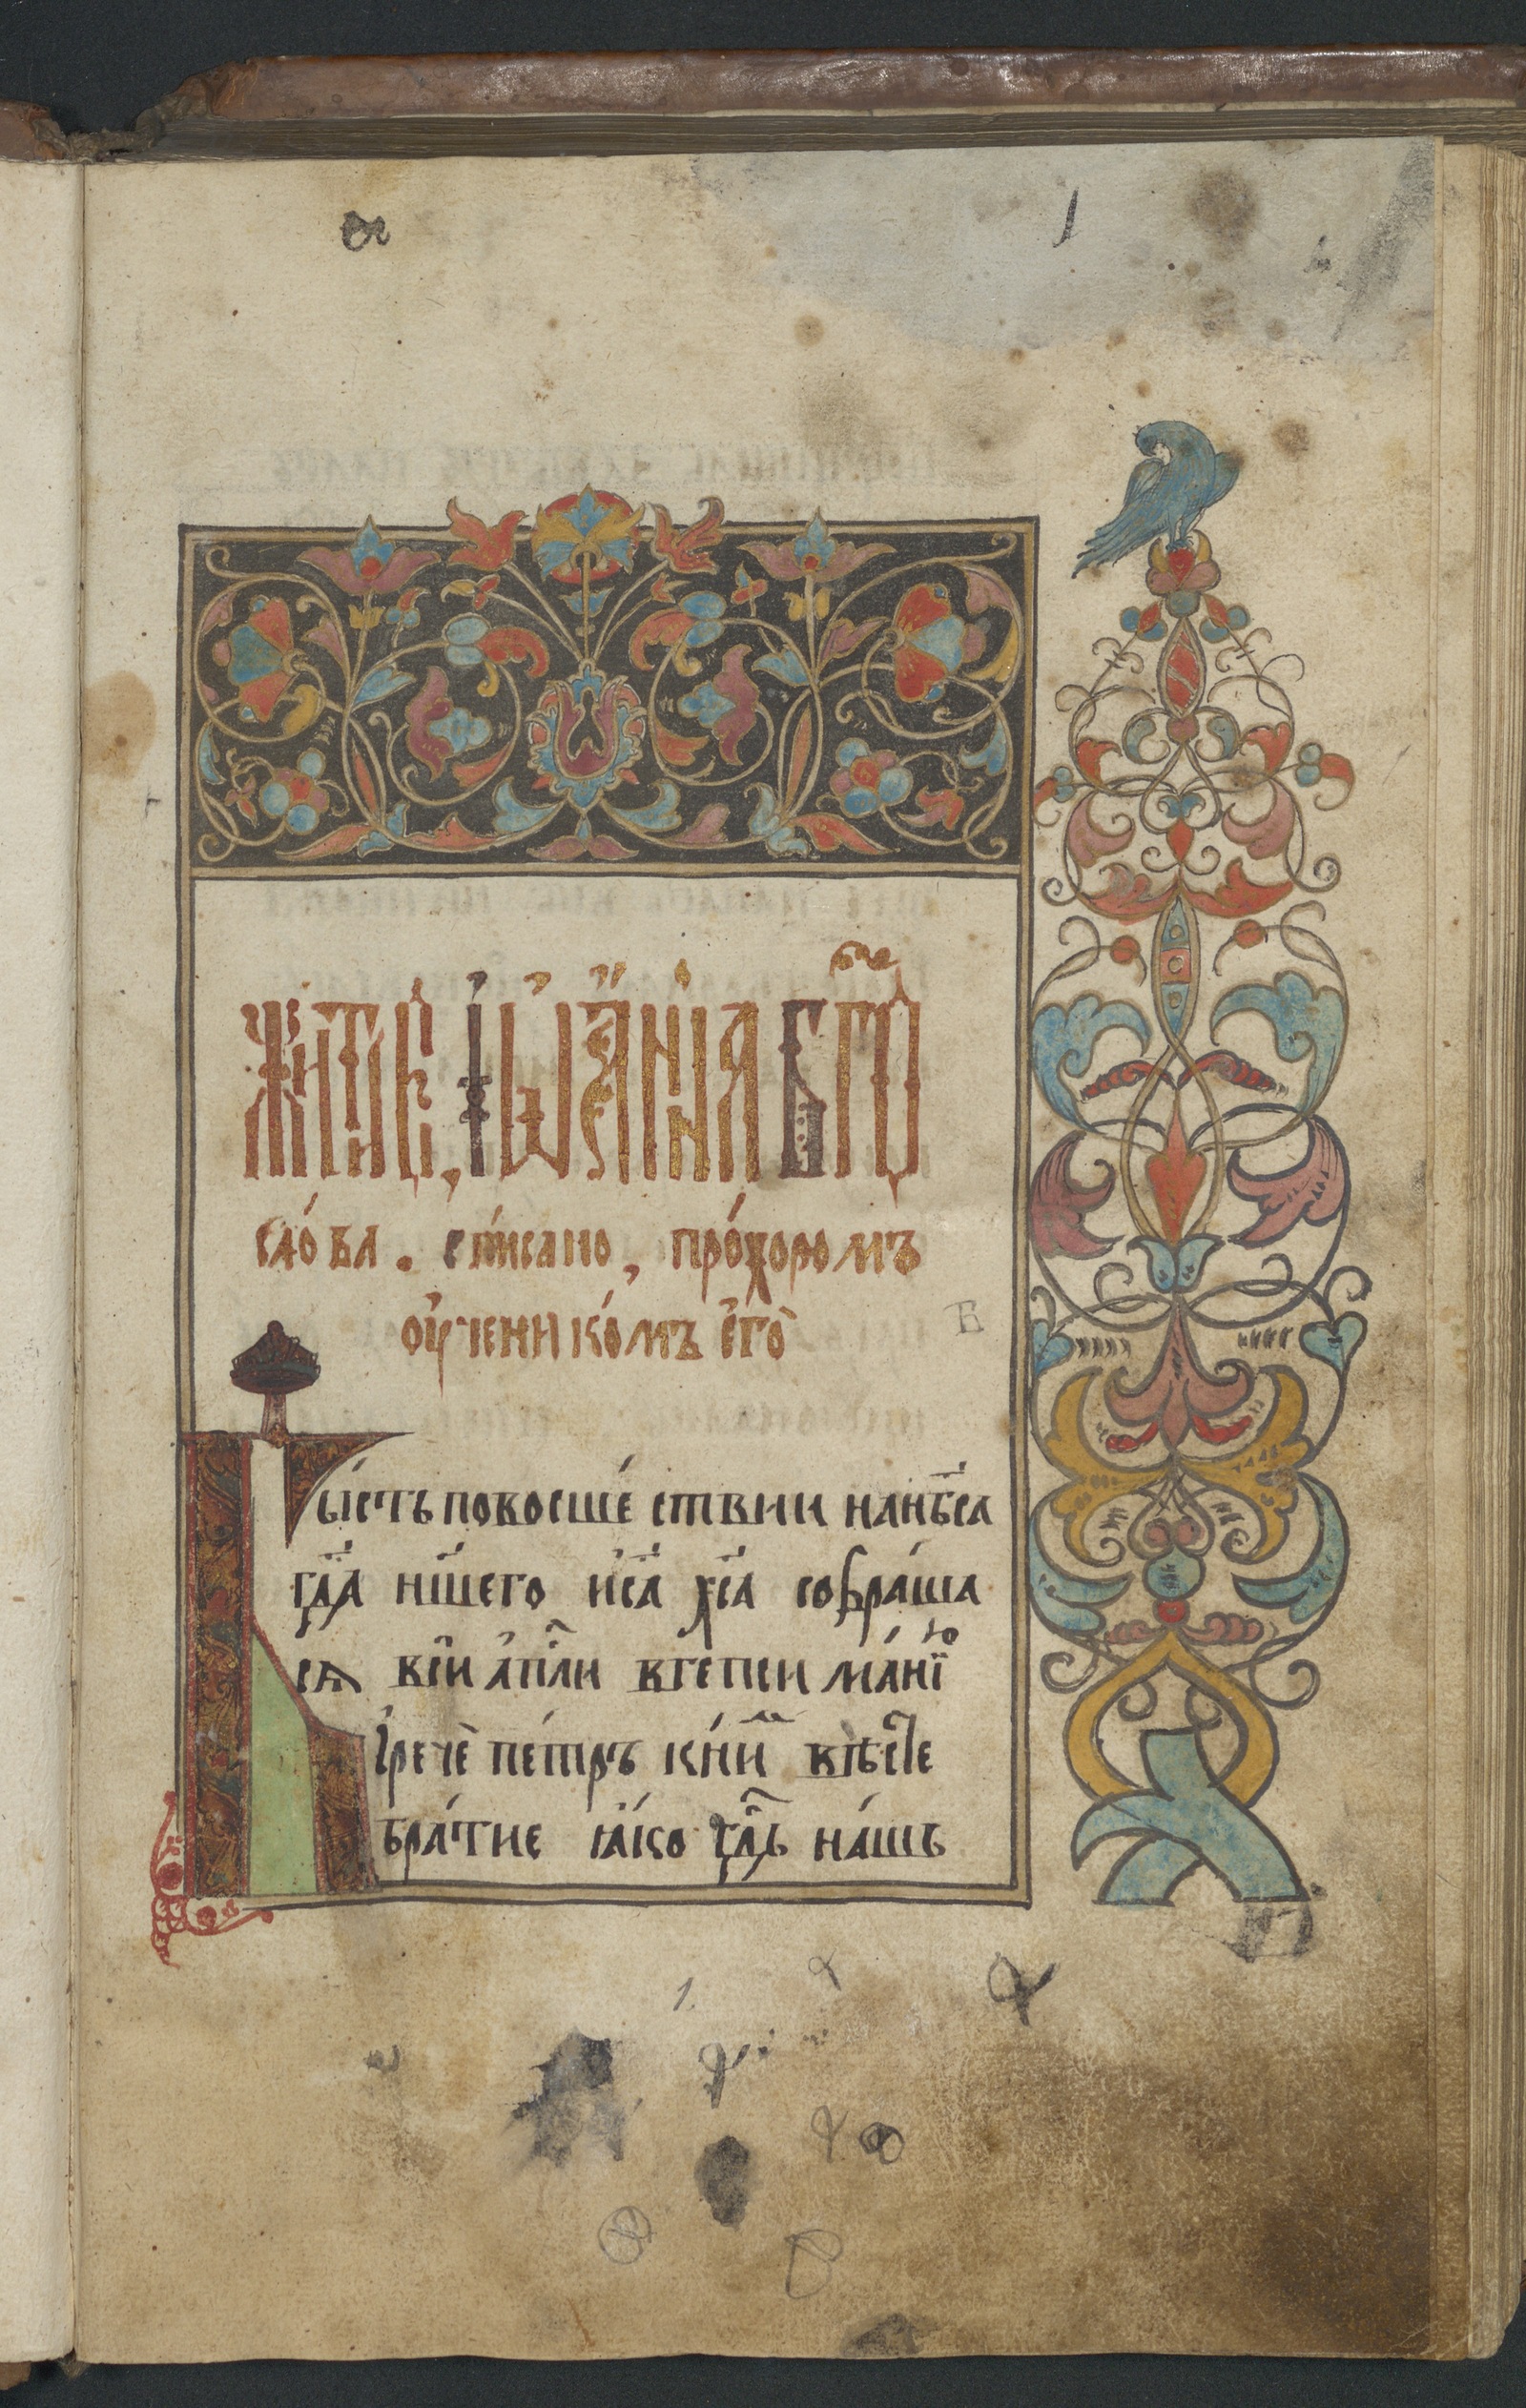 1
житїе, іѡанна бг҃о
сло́ва. спи́сано, про́хоромъ
оу҆ченико́мъ є҆го̀
Бы́сть повосше́ствии нанб҃са
гд҃а нш҃его и҆с҃а хс҃а собра́ша
сѧ вси҆ а҆п҃ли вгепси ма́нїю
І҆речѐ пе́тръ кни́м вѣ̀сте
бра́тие ꙗ҆́ко гд҃ь на́шъ